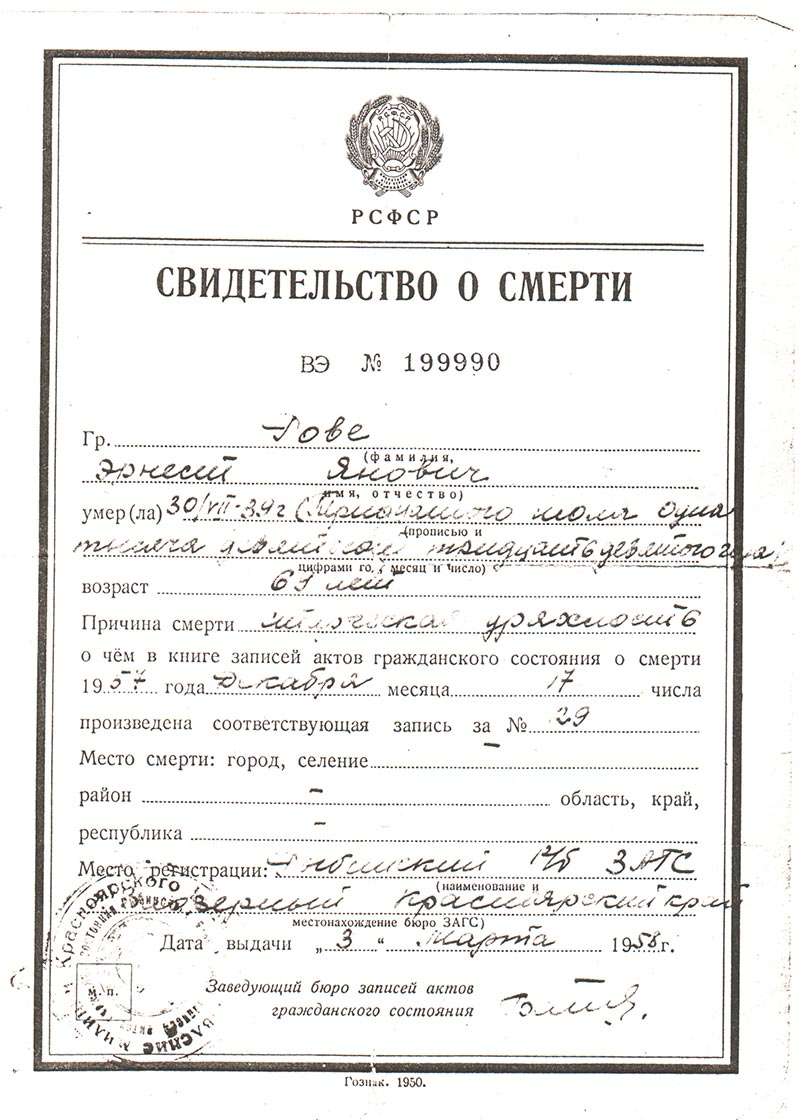 РСФСР
РСФСР
СВИДЕТЕЛЬСТВО О СМЕРТИ
ВЭ № 199990
Гр. Гове
(фамилия,
Эрнест Янович
имя, отчество)
умер(ла) 30/VII-39г ( июля одна
(прописью и
тысяча девятьсот тридцать девятого года)
цифрами год, месяц и число)
возраст лет
Причина смерти дряхлость
о чём в книге записей актов гражданского состояния о смерти
1957 года Декабря месяца 17 числа
произведена соответствующая запись за № 29
Место смерти: город, селение –
район – область, край,
республика –
Место регистрации: р/б ЗАГС
(наименование и
Красноярский край
местонахождение бюро ЗАГС)
Дата выдачи „ 3 “ марта 1958 г.
Красноярского
М. П.
Заведующий бюро записей актов
гражданского состояния
Гознак. 1950.